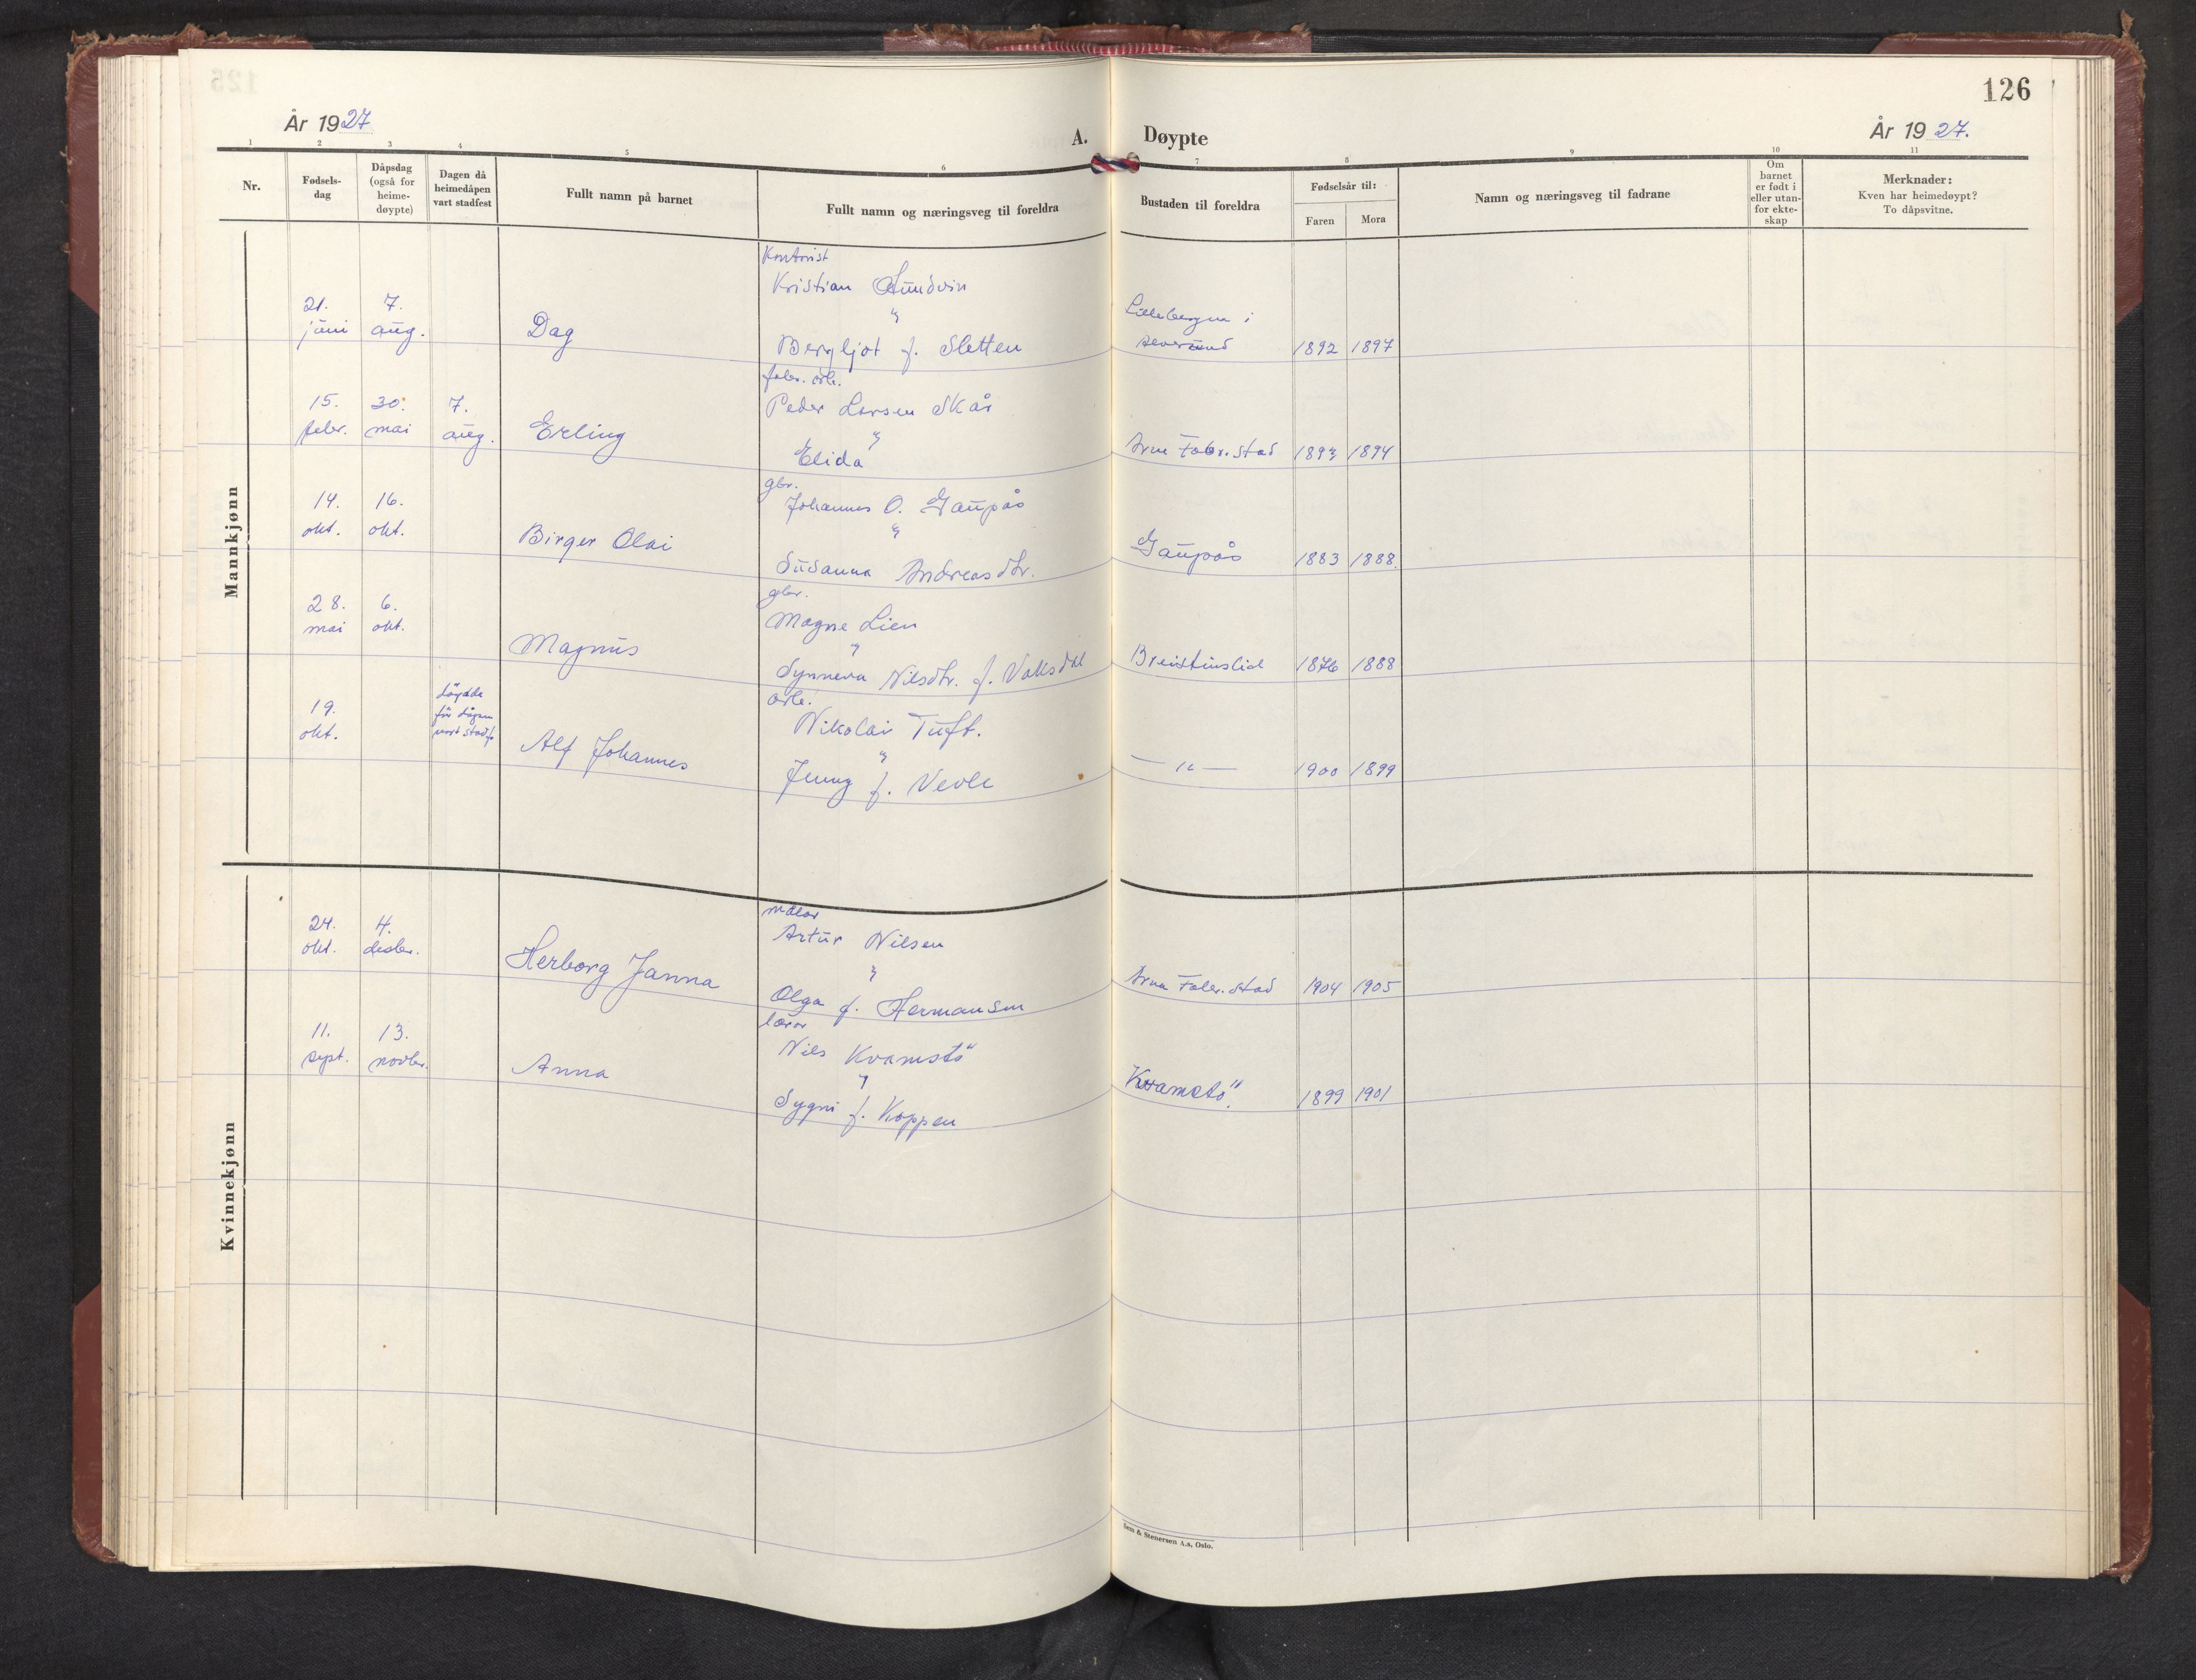 126
År 1927
A. Døypte
År 1927.
1 2 3 4 5 6 7 8 9 10 11
Nr.
Fødsels-
dag
Dåpsdag
(også for
heime-
døypte)
Dagen då
heimedåpen
vart stadfest
Fullt namn på barnet
Fullt namn og næringsveg til foreldra
Bustaden til foreldra
Fødselsår til:
Faren Mora
Namn og næringsveg til fadrane
Om
barnet
er født i
eller utan-
for ekte-
skap
Merknader:
Kven har heimedøypt?
To dåpsvitne.
Mannkjønn
Kontorist
Kristian Sundvin
21. 7.
juni aug.
Dag
Bergljot f. Sletten
i
1892 1897
fabr. arb.
Peder Larsen Skår
15. 30. 7.
febr. mai aug.
Erling
Elida
Arna Fabr.stad 1893 1894
gbr.
Johannes O. Gaupås
14. 16.
okt. okt.
Birger Olai
Susanna Andreasdtr.
Gaupås 1883 1888.
gbr.
Magne Lien
28. 6.
mai okt.
Magnus
Synneva Nilsdtr. f. Vaksdal
Breistinslid 1876 1888
arb.
Nikolai Tuft.
19.
okt.
døydde
før dåpen
vart stadf.
Alf Johannes
Jenny f. Vevle
— " — 1900 1899
Kvinnekjønn
målar
Artur Nilsen
24. 4.
okt. desbr.
Herborg Janna
Olga f. Hermansen
Arna Fabr.stad 1904 1905
lærar
Nils Kvamstö
11. 13.
sept. novbr.
Anna
Sygni f. Koppen
Kvamstö. 1899 1901
Sem & Stenersen A.s, Oslo.